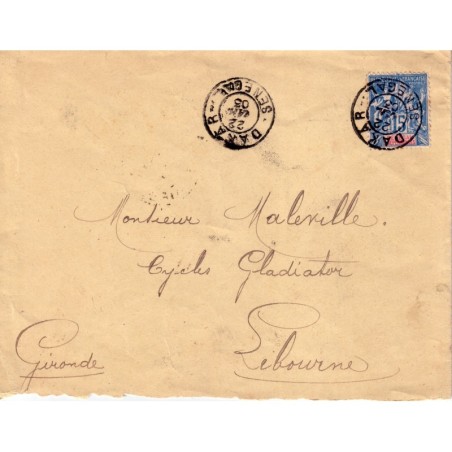 DAKAR SENEGAL
22
05
DAKAR SENEGAL
22
15
Monsieur Maleville.
Cycles Gladiator
Libourne
Gironde